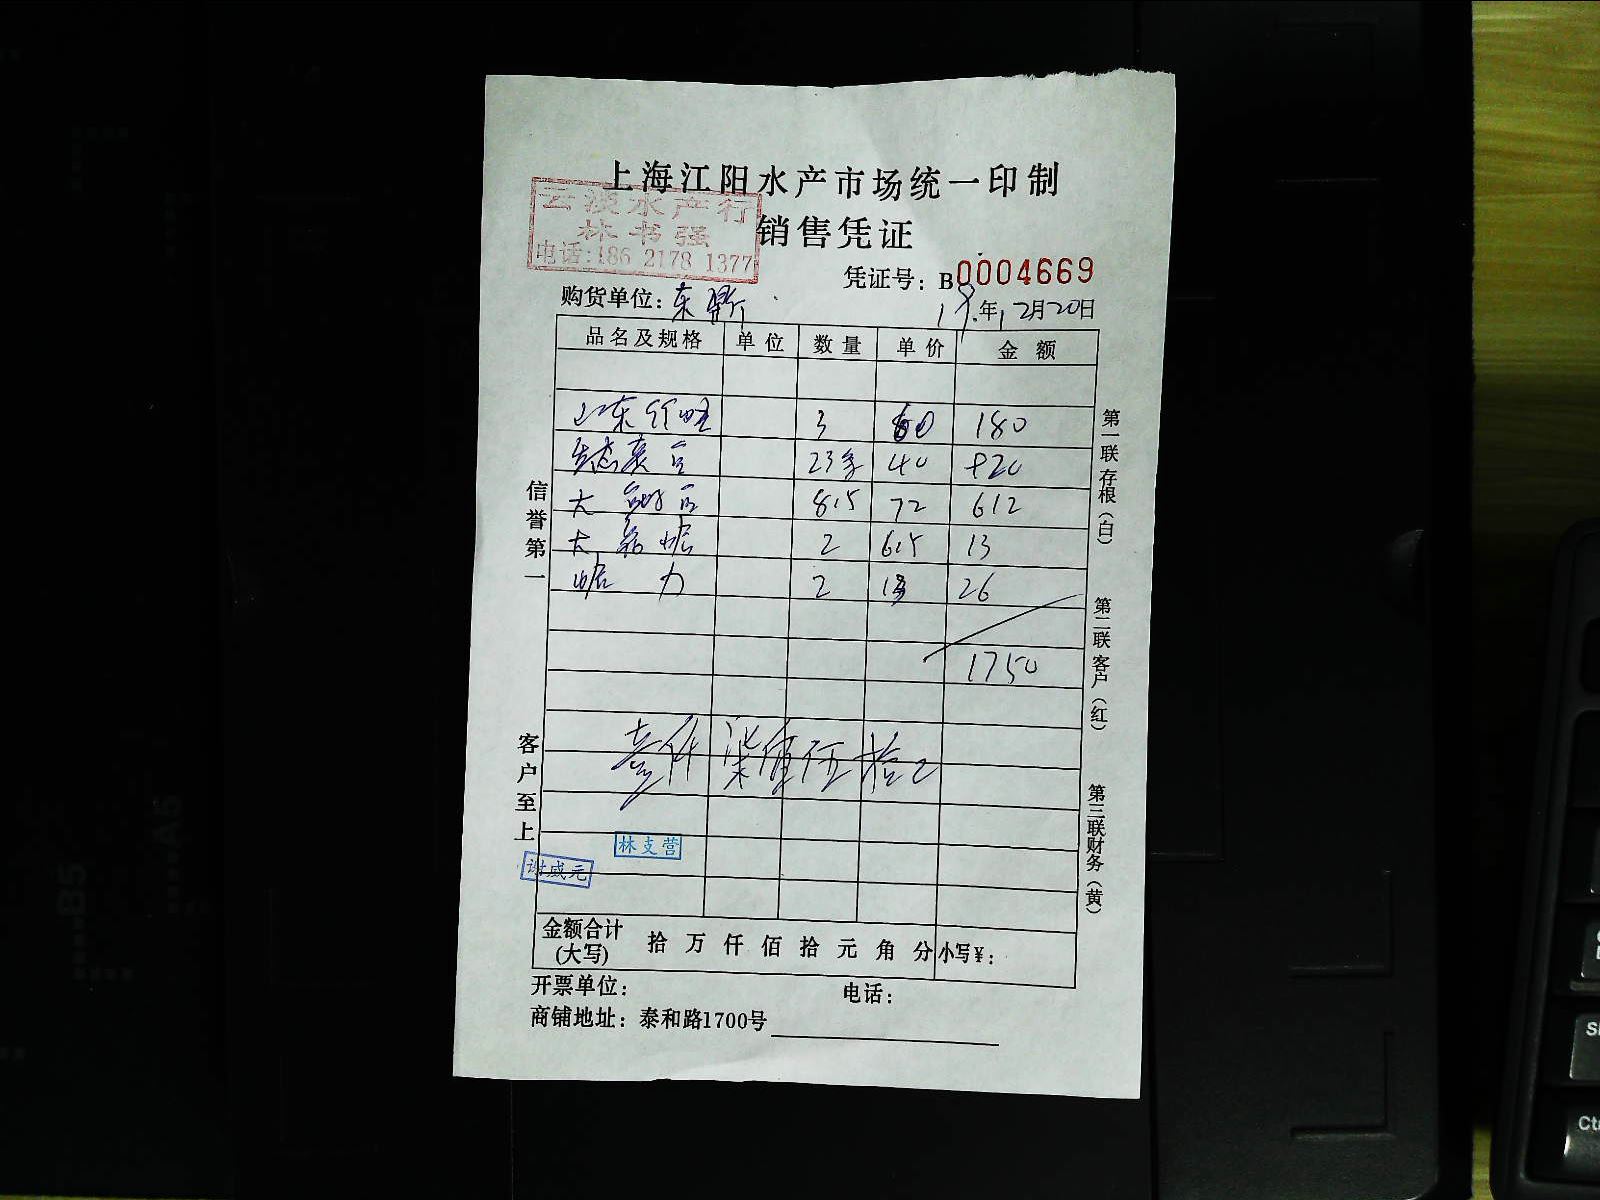 上海江阳水产市场统一印制
云溪水产行
林书强
电话:186 2178 1377
销售凭证
凭证号: B0004669
购货单位: 东
年12月20日
品名及规格 单位 数量 单价 金额
山东 3 60 180
23 40 920
大 8.5 72 612
大 2 6.5 13
力 2 13 26
1750
壹仟柒佰伍拾
信誉第一
客户至上
第一联存根(白)
第二联客户(红)
第三联财务(黄)
林支营
谢成元
金额合计(大写) 拾 万 仟 佰 拾 元 角 分 小写¥:
开票单位: 电话:
商铺地址: 泰和路1700号
B5
A5
Ct